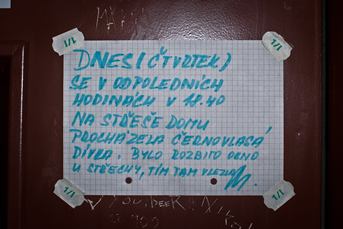 1/1
1/1
DNES (ČTVRTEK)
SE V ODPOLEDNÍCH
HODINÁCH V 18.40
NA STŘEŠE DOMU
PROCHÁZELA ČERNOVLASÁ
DÍVKA. BYLO ROZBITO OKNO
U STŘECHY, TÍM TAM VLEZLA
1/1
1/1